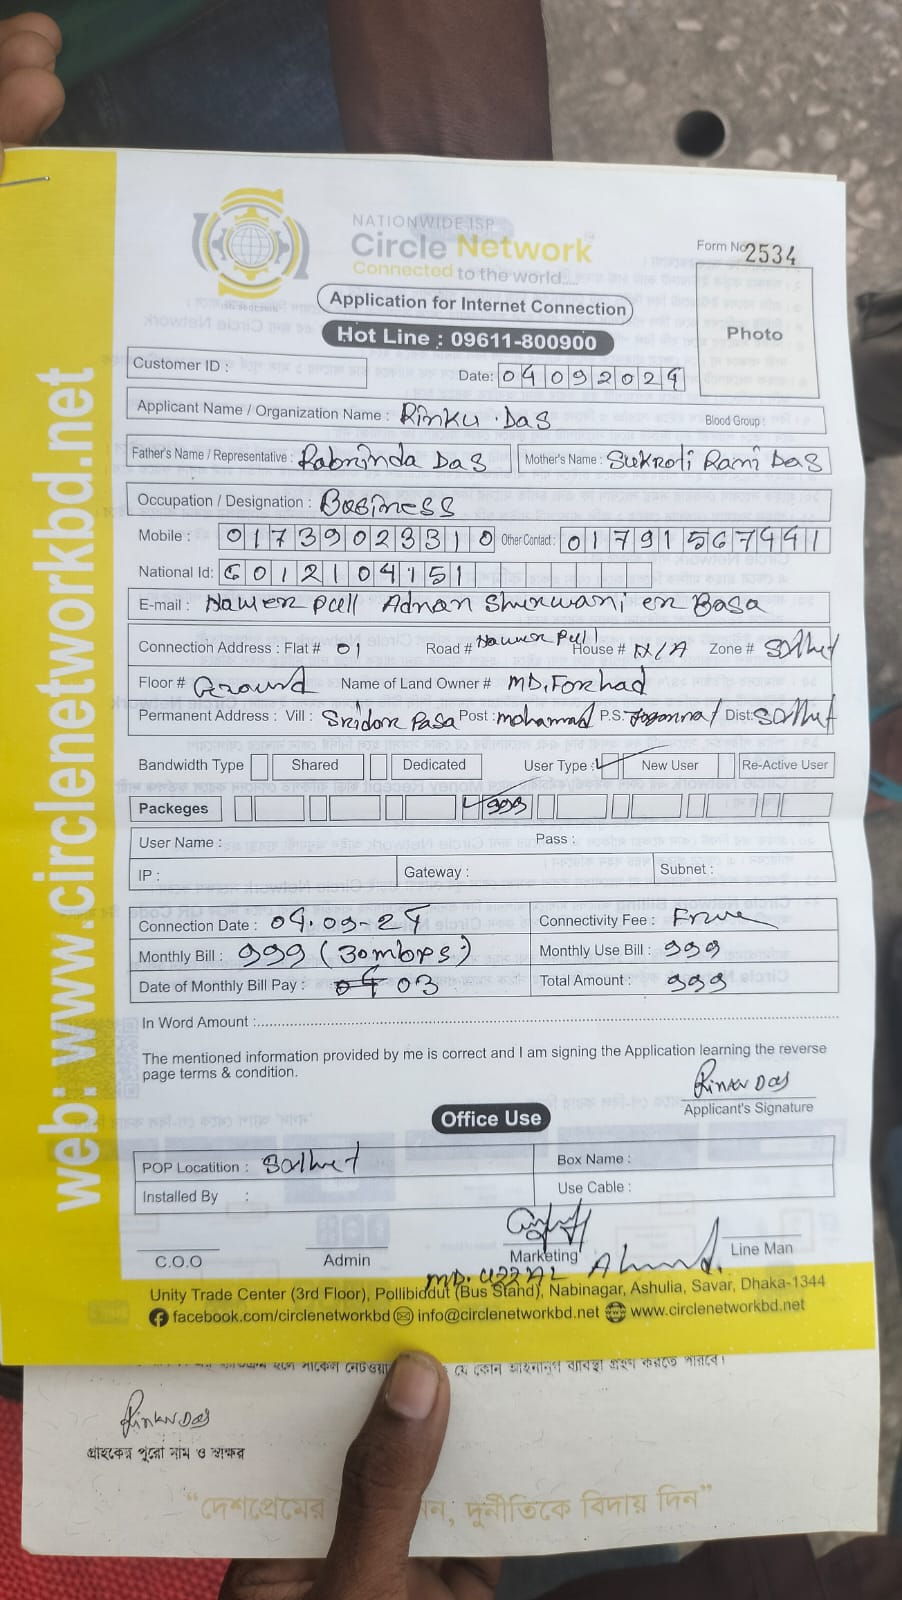 NATIONWIDE ISP
Circle Network
Connected to the world....
Form No 2534
Application for Internet Connection
Hot Line : 09611-800900
Photo
Customer ID :
Date: 04092024
Applicant Name / Organization Name : Rinku Das Blood Group :
Father's Name / Representative : Rabrinda Das Mother's Name : Sukroti Rani Das
Occupation / Designation : Business
Mobile : 01739023310 Other Contact : 01791567441
National Id: 6012104151
E-mail : Hawer pull Adnan Sherwani er Basa
Connection Address : Flat # 01 Road # Hawer Pull House # N/A Zone # Solhet
Floor # Ground Name of Land Owner # MD. Forhad
Permanent Address : Vill : Sridor Pasa Post : mohammad P.S. Dist: Solhet
Bandwidth Type Shared Dedicated User Type : New User Re-Active User
Packeges 999
User Name : Pass :
IP : Gateway : Subnet :
Connection Date : 04.09-24 Connectivity Fee : Free
Monthly Bill : 999 (30mbps) Monthly Use Bill : 999
Date of Monthly Bill Pay : 03 Total Amount : 999
In Word Amount :
The mentioned information provided by me is correct and I am signing the Application learning the reverse
page terms & condition.
Rinku Das
Applicant's Signature
Office Use
POP Locatition : Solhet Box Name :
Installed By : Use Cable :
C.O.O Admin Marketing Line Man
MD. uzzal Ahmed
Unity Trade Center (3rd Floor), Pollibiddut (Bus Stand), Nabinagar, Ashulia, Savar, Dhaka-1344
facebook.com/circlenetworkbd info@circlenetworkbd.net www.circlenetworkbd.net
web: www.circlenetworkbd.net
যে কোন আইনানুগ ব্যবস্থা গ্রহণ করতে পারবে।
Rinku Das
গ্রাহকের পুরো নাম ও স্বাক্ষর
“দেশপ্রেমের দুর্নীতিকে বিদায় দিন”